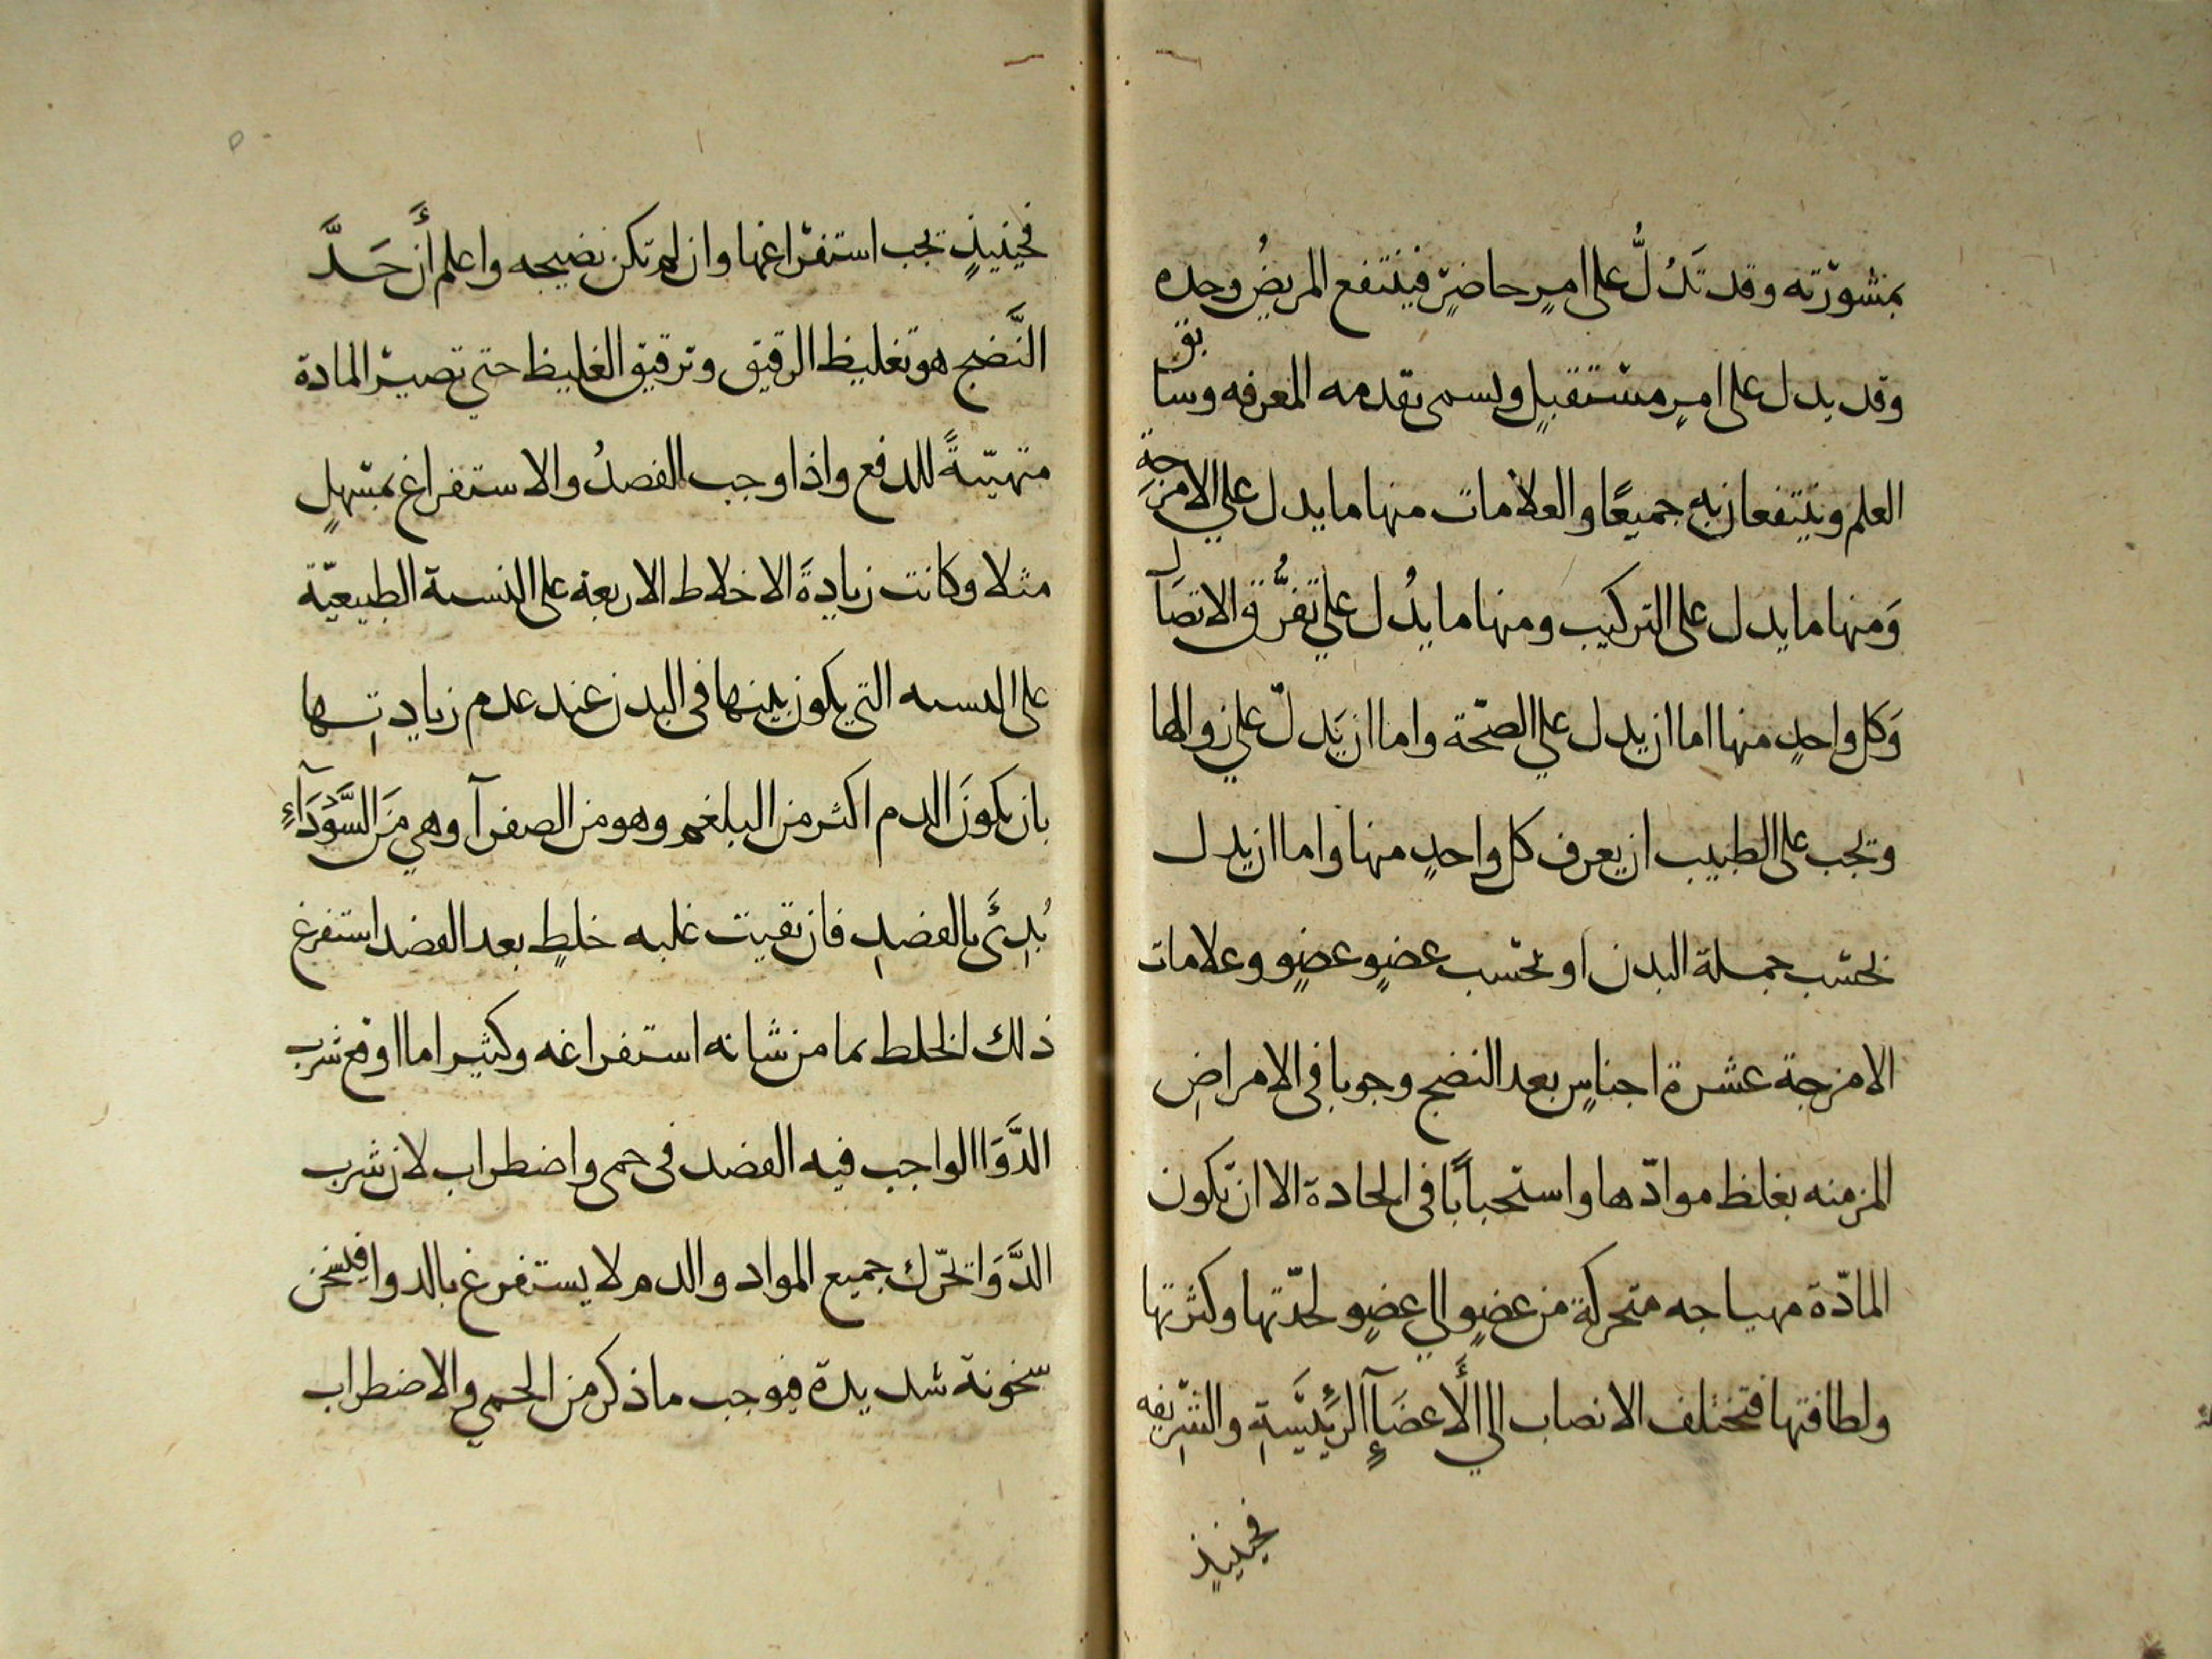 بمشورته وقد تَدُلُّ على امرٍ حاضرٍ فينتفع المريضُ وحده
وقد يدل على امرٍ مستقبلٍ ويسمى تقدمه المعرفه وسابق
العلم وينتفعان به جميعًا والعلامات منها ما يدل علي الامزجة
وَمنها ما يدل على التركيب ومنها ما يدُل علي تفرُّق الاتصَال
وَكل واحدٍ منها اما ان يدل علي الصحّة واما ان يَدلّ علي زوالها
وتجب على الطبيب ان يعرف كل واحدٍ منها واما ان يدل
بحسب جملة البدن او بحسب عضوٍ عضوٍ وعلامات
الامزجة عشرة اجناسٍ بعد النضج وجوبا في الامراضِ
المزمنه بغلظ موادّها واستحباباً في الحادة الا ان تكون
المادّة مهياجه متحركة من عضوٍ الي عضوٍ لحدّتها وكثرتها
ولطافتها فتختلف الانصاب الي الأَعضَآءِ الرئيسَيةِ والشريفه
فحينيذٍ
فحينيذٍ تجب استفراغها وان لم تكن نضيجه واعلم أَن حَدَّ
النَّضج هو تغليظ الرقيق وترقيق الغليظ حتي تصير المادة
متهيّئةً للدفع واذا وجب الفصدُ والاستفراغ بمسهلٍ
مثلا وكانت زيادةَ الاخلاط الاربعة على النسبة الطبيعيّة
على النسبه التي يكون بينها في البدن عند عدم زيادتِها
بان يكونَ الدم اكثر من البلغم وهو من الصفرآ وهي مَن السَّودَآءِ
بُدِئَ بالفصدِ فان بقيت غلبه خلطٍ بعد الفصد استفرغ
ذلك الخلط بما من شانه استفراغه وكثير اما اوقع شرب
الدَّوَا الواجب فيه الفصد في حمى واضطراب لان شرب
الدَّوَا تحرّك جميع المواد والدم لا يستفرغ بالدوا فيسخن
سخونة شديدة فيوجب ما ذكر من الحمي والاضطراب